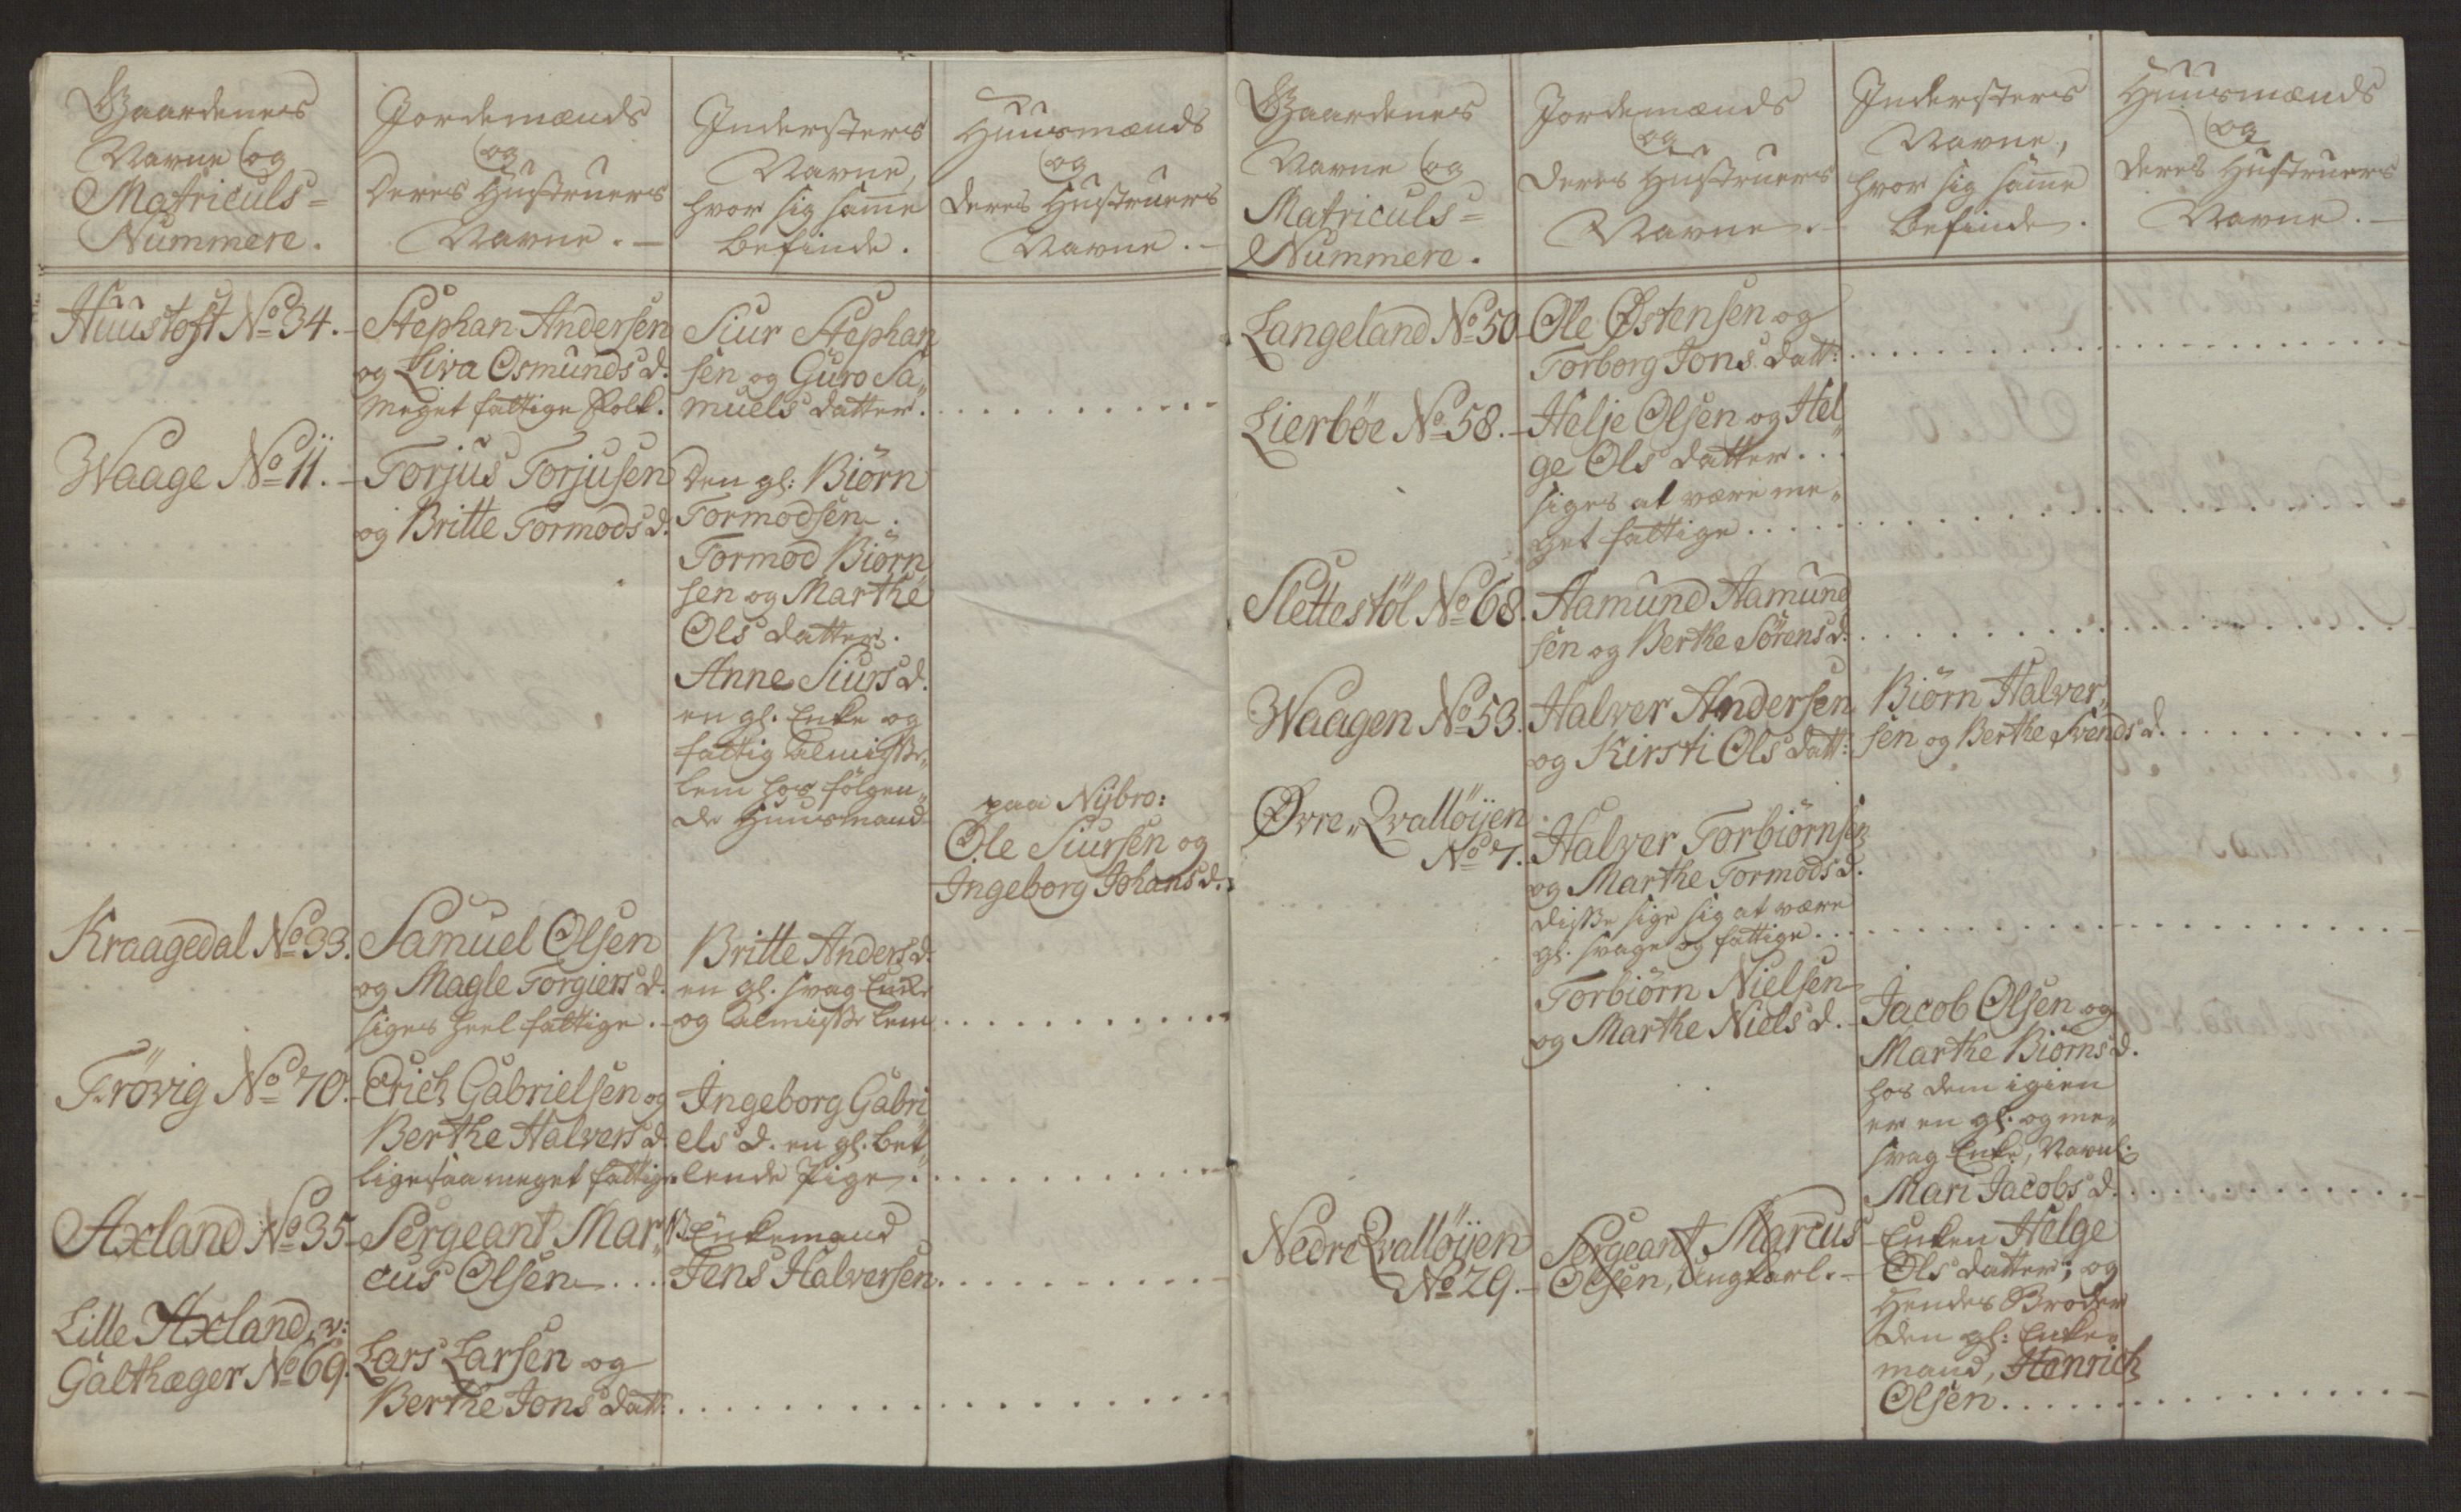 Gaardenes
Navne og
Matriculs=
Nummere.
Jordemænds
og
Deres Hustruers
Navne.
Indersters
Navne,
hvor sig same
befinde.
Huusmænds
og
deres Hustruers
Navne.
Huustoft No 34.
Stephan Andersen
og Liva Osmunds d.
meget fattige Folk.
Siur Stephan„
sen og Guro Sa„
muels datter.
Waage No 11.
Torjus Torjusen
og Britte Tormods d.
Den gl: Biörn
Tormodsen.
Tormod Biörn
sen og Marthe
Ols datter.
Anne Siurs d.
en gl. Enke og
fattig Almisse„
lem hos fölgen„
de Huusmand
paa Nÿbro:
Ole Siursen og
Ingeborg Johans d.
Kraagedal No 33.
Samuel Olsen
og Magle Torgiers d.
siges heel fattige.
Britte Anders d.
en gl. svag Enke
og Almisse Lem
Frövig No 70.
Erich Gabrielsen og
Berthe Halvers d.
ligesaa meget fattige
Ingeborg Gabri„
els d. en gl. bet„
lende Pige.
Axland No 35
Sergeant Mar„
cus Olsen
Enkemand
Jens Halversen
Lille Axland, v:
Galthæger No 69.
Lars Larsen og
Berthe Jons datt:
Gaardenes
Navne og
Matriculs=
Nummere.
Jordemænds
og
deres Hustruers
Navne.
Indersters
Navne,
hvor sig same
befinde.
Huusmænds
og
deres Hustruers
Navne.
Langeland No 50
Ole Östensen og
Torborg Jons datt:
Lierböe No 58.
Helje Olsen og Hel„
ge Ols datter...
siges at være me„
get fattige
Slettestöl No 68.
Aamund Aamund
sen og Berthe Sörens d.
Waagen No 53.
Halver Andersen
og Kirsti Ols datt:
Biörn Halver„
sen og Berthe Svends d.
Øvre„ Qvallöijen
No 7.
Halver Torbiörnsen
og Marthe Tormods d.
disse sige sig at være
gl. svage og fattige.
Torbiörn Nielsen
og Marthe Niels d.
Jacob Olsen og
Marthe Biörns d.
hos dem igien
er en gl. og me„
svag Enke, Navnl:
Mari Jacobs d.
Nedre Qvallöijen
No 29.
Sergeant Marcus
Olsen, Ungkarl.
Enken Helge
Ols datter, og
Hendes Broder
den gl: Enke„
mand, Henrich
Olsen